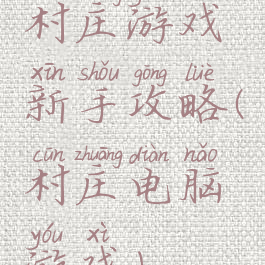 村庄游戏
xīn shǒu gōng lüè
新手攻略(
cūn zhuāng diàn nǎo
村庄电脑
yóu xì
游戏)